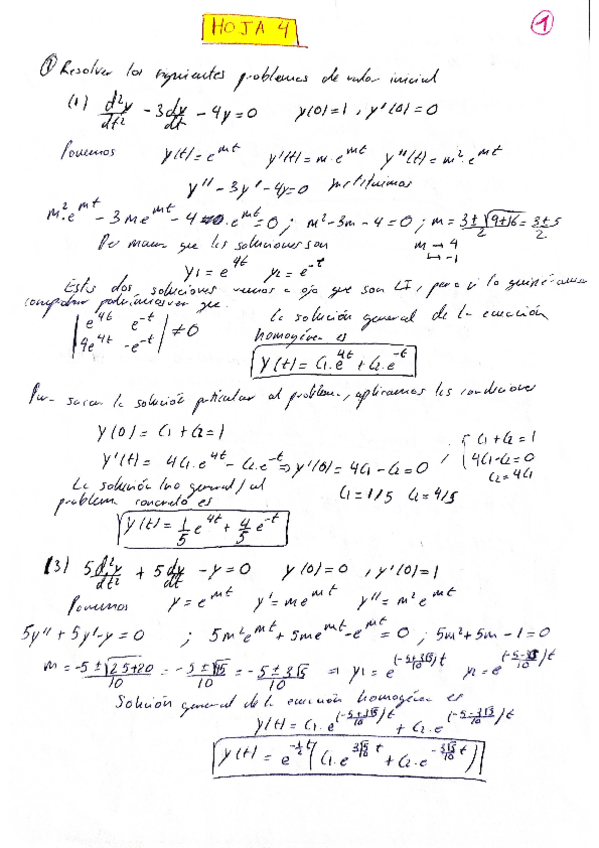 HOJA 4
1
① Resolver los siguientes problemas de valor inicial
(1) d²y/dt² - 3dy/dt - 4y = 0 y(0)=1, y'(0)=0
Ponemos y(t) = e^mt y'(t) = m·e^mt y''(t) = m²·e^mt
y'' - 3y' - 4y = 0 sustituimos
m²·e^mt - 3m·e^mt - 4·e^mt = 0 ; m² - 3m - 4 = 0 ; m = (3 ± √(9+16))/2 = (3 ± 5)/2
De manera que las soluciones son m → 4
↳ -1
y1 = e^4t y2 = e^-t
Estas dos soluciones vemos a ojo que son LI, pero si lo
comprobar que
|e^4t e^-t| La solución general de la ecuación
|4e^4t -e^-t| ≠ 0 homogénea es
y(t) = C1·e^4t + C2·e^-t
Para sacar la solución particular al problema, aplicamos las condiciones
y(0) = C1 + C2 = 1 { C1 + C2 = 1
y'(t) = 4C1·e^4t - C2·e^-t ⇒ y'(0) = 4C1 - C2 = 0 / 4C1 - C2 = 0
C2 = 4C1
La solución (no general) al C1 = 1/5 C2 = 4/5
problema concreto es
y(t) = 1/5 e^4t + 4/5 e^-t
(3) 5d²y/dt² + 5dy/dt - y = 0 y(0)=0, y'(0)=1
Ponemos y = e^mt y' = me^mt y'' = m²e^mt
5y'' + 5y' - y = 0 ; 5m²e^mt + 5me^mt - e^mt = 0 ; 5m² + 5m - 1 = 0
m = (-5 ± √(25+20))/10 = (-5 ± √45)/10 = (-5 ± 3√5)/10 ⇒ y1 = e^((-5+3√5)/10)t y2 = e^((-5-3√5)/10)t
Solución general de la ecuación homogénea es
y(t) = C1·e^((-5+3√5)/10)t + C2·e^((-5-3√5)/10)t
y(t) = e^(-1/2 t) (C1·e^(3√5/10 t) + C2·e^(-3√5/10 t))